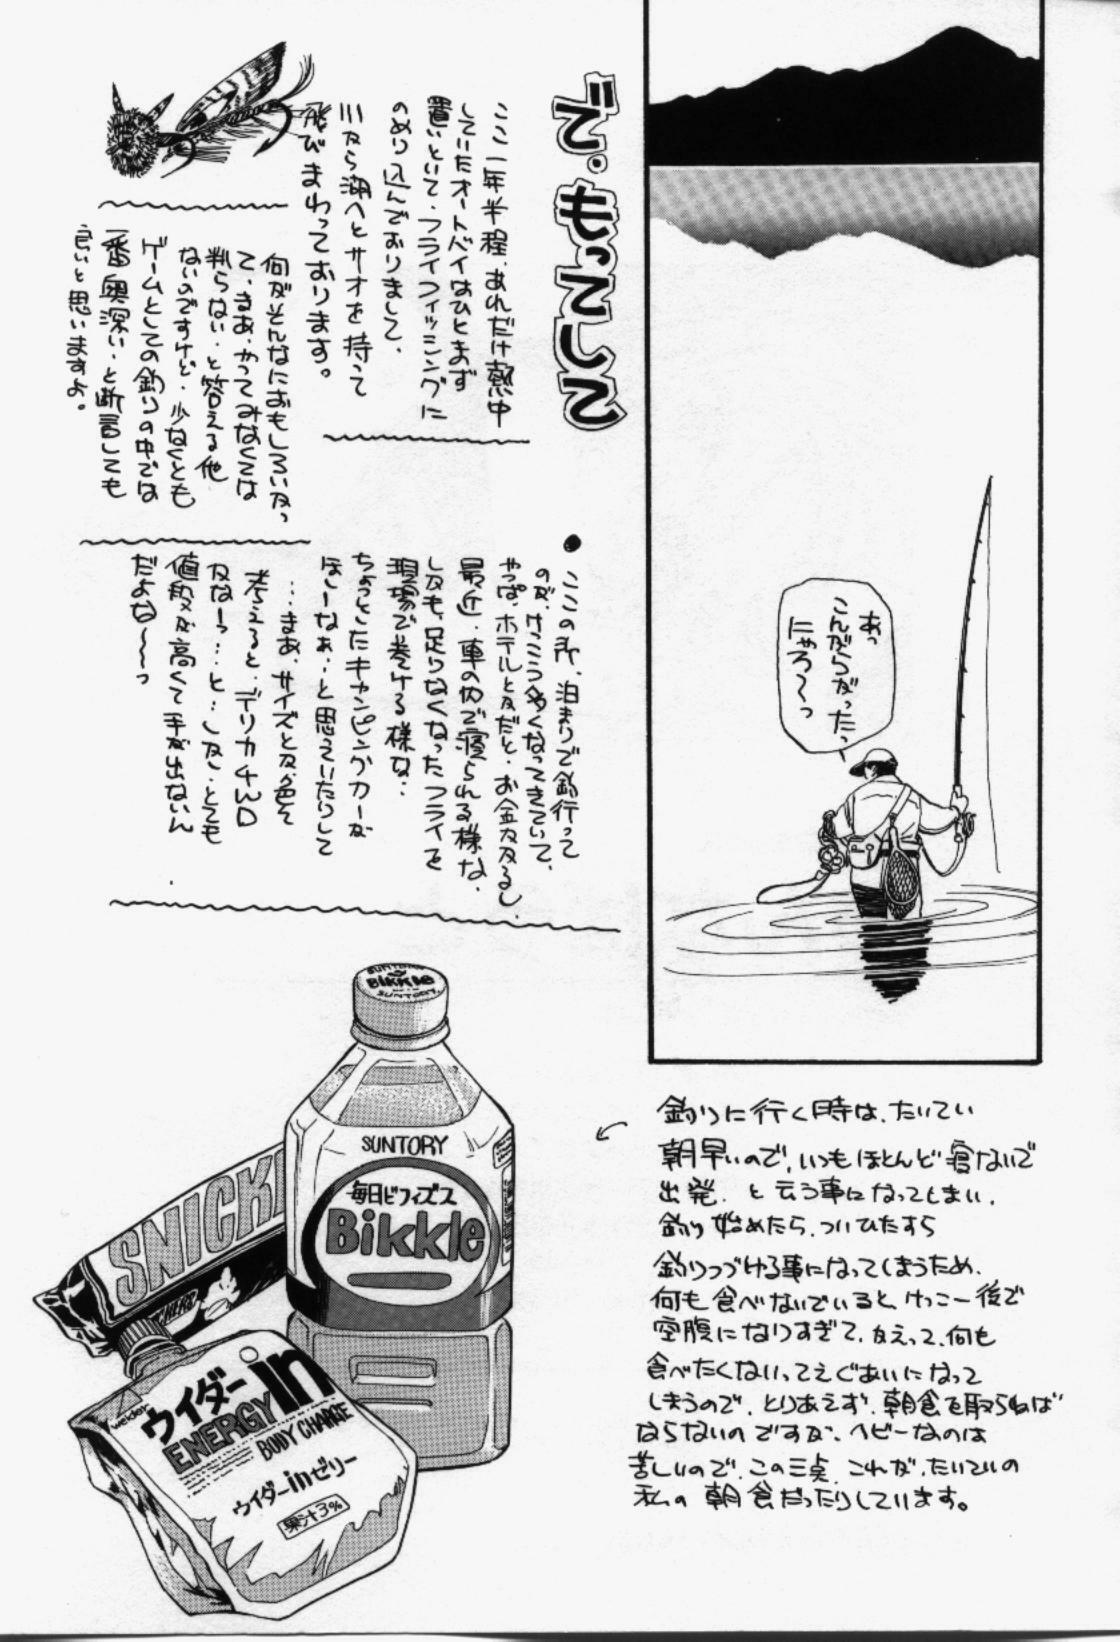 で、もってして
ここ一年半程、あれだけ熱中
していたオートバイはひとまず
置いといて、フライフィッシングに
のめり込んでおりまして、
川から湖へとサオを持って
飛びまわっております。
何がそんなにおもしろいかっ
て、まあ、やってみなくては
判らない、と答える他
ないのですけど、少なくとも
ゲームとしての釣りの中では
一番奥深い、と断言しても
良いと思いますよ。
あっ
こんがらがったっ
にゃろ〜っ
●ここの所、泊まりで釣行って
のが、けっこう多くなってきていて、
やっぱ、ホテルとかだと、お金かかるし、
最近、車の中で寝られる様な、
しかも、足りなくなったフライを
現場で巻ける様な‥
ちょっとしたキャンピングカーが
ほしーなぁ‥と思えていたりして
…まあ、サイズとか色々
考えると、デリカ4WD
かなーっ…と…しか、とても
値段が高くて手が出ないん
だよな〜〜っ
釣りに行く時は、たいてい
朝早いので、いつもほとんど寝ないで
出発、と云う事になってしまい、
釣り始めたら、ついひたすら
釣りつづける事になってしまうため、
何も食べないでいると、けっこー後で
空腹になりすぎて、かえって、何も
食べたくないってえぐあいになって
しまうので、とりあえず、朝食を取らねば
ならないのですが、ヘビーなのは
苦しいので、この三点、これが、たいていの
私の朝食だったりしています。
SUNTORY
Bikkle
SUNTORY
SUNTORY
毎日ビフィズス
Bikkle
SNICK
weider
ウイダーin
ENERGY
BODY CHARGE
ウイダーinゼリー
果汁3%